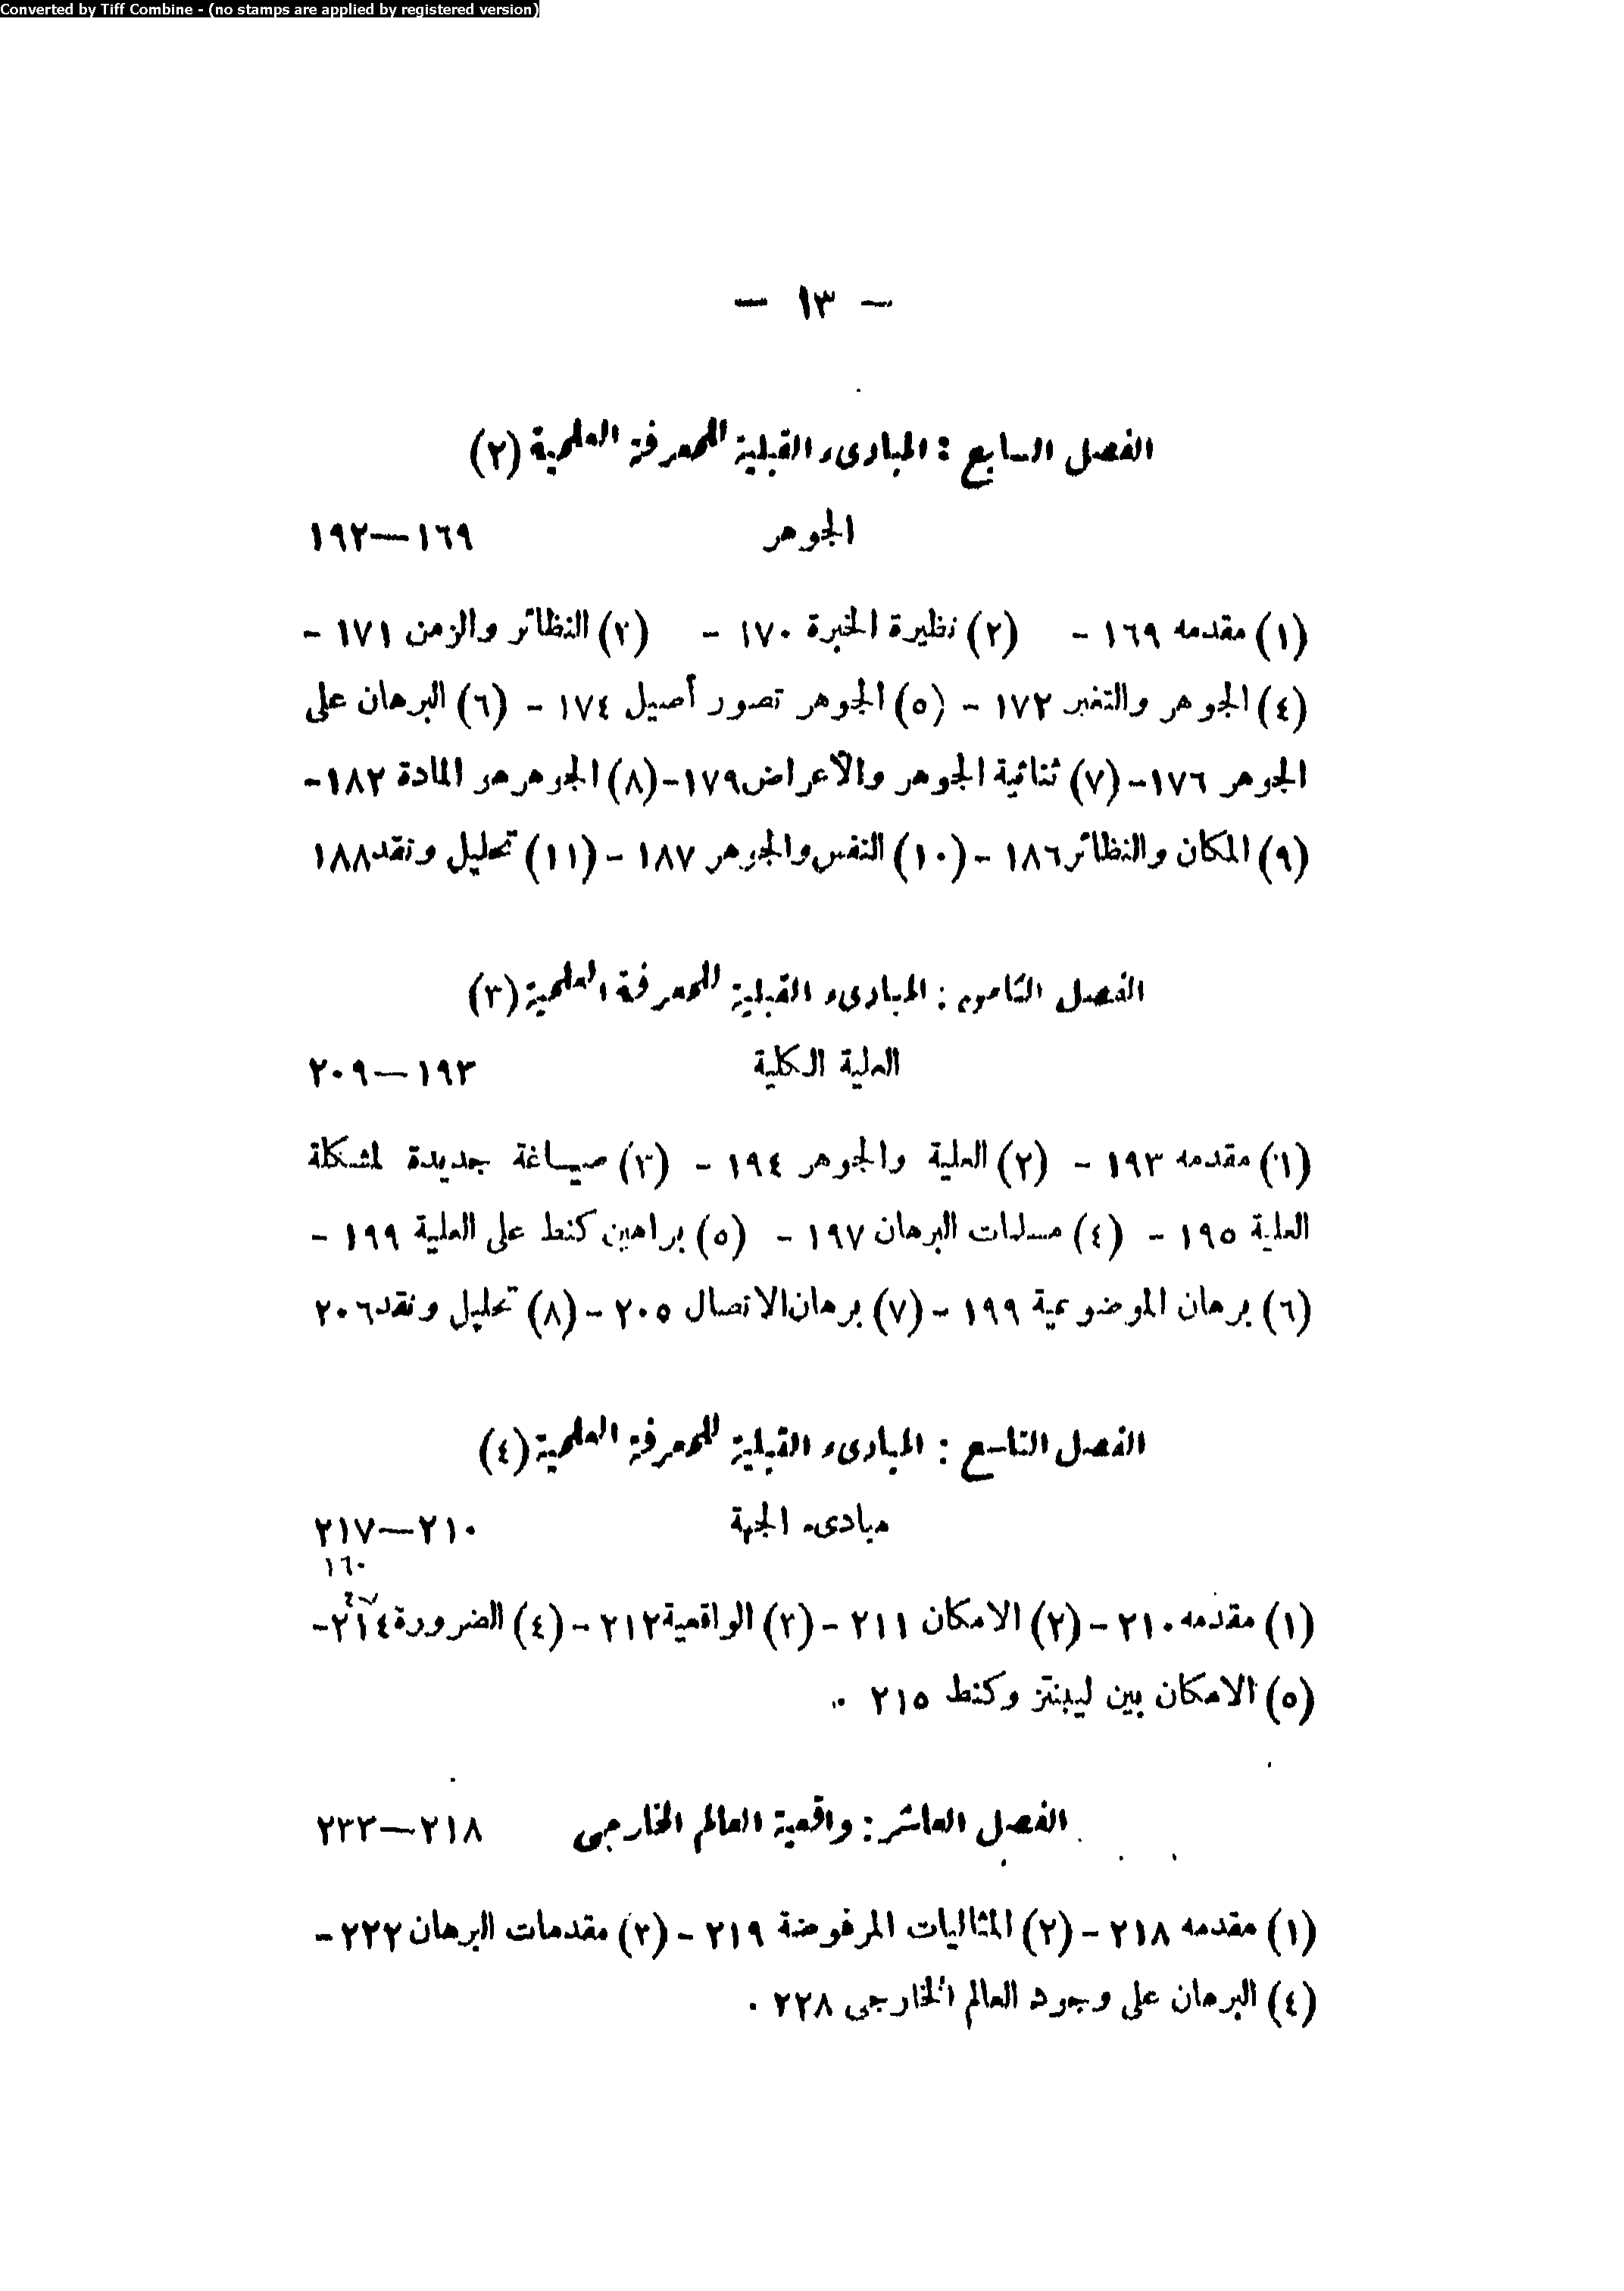 Converted by Tiff Combine - (no stamps are applied by registered version)
— ١٣ —
الفصل السابع : المبادىء القبلية للمعرفة العلمية (٢)
الجوهر ١٦٩—١٩٢
(١) مقدمه ١٦٩ - (٢) نظيرة الخبرة ١٧٠ - (٣) النظائر والزمن ١٧١ -
(٤) الجوهر والتغير ١٧٢ - (٥) الجوهر تصور أصيل ١٧٤ - (٦) البرهان على
الجوهر ١٧٦ - (٧) ثنائية الجوهر والأعراض ١٧٩ - (٨) الجوهر هو المادة ١٨٢ -
(٩) المكان والنظائر ١٨٦ - (١٠) النفس والجوهر ١٨٧ - (١١) تحليل ونقد ١٨٨
الفصل الثامن : المبادىء القبلية للمعرفة العلمية (٣)
العلية الكلية ١٩٣—٢٠٩
(١) مقدمه ١٩٣ - (٢) العلية والجوهر ١٩٤ - (٣) صياغة جديدة لمشكلة
العلية ١٩٥ - (٤) مسلمات البرهان ١٩٧ - (٥) براهين كنط على العلية ١٩٩ -
(٦) برهان الموضوعية ١٩٩ - (٧) برهان الاتصال ٢٠٥ - (٨) تحليل ونقد ٢٠٦
الفصل التاسع : المبادىء القبلية للمعرفة العلمية (٤)
مبادىء الجهة ٢١٠—٢١٧
١٦٠
(١) مقدمه ٢١٠ - (٢) الامكان ٢١١ - (٣) الواقعية ٢١٢ - (٤) الضرورة ٢١٤ -
(٥) الامكان بين ليبنتز وكنط ٢١٥ .
الفصل العاشر : واقعية العالم الخارجى ٢١٨—٢٣٣
(١) مقدمه ٢١٨ - (٢) المثاليات المرفوضة ٢١٩ - (٣) مقدمات البرهان ٢٢٢ -
(٤) البرهان على وجود العالم الخارجى ٢٢٨ .